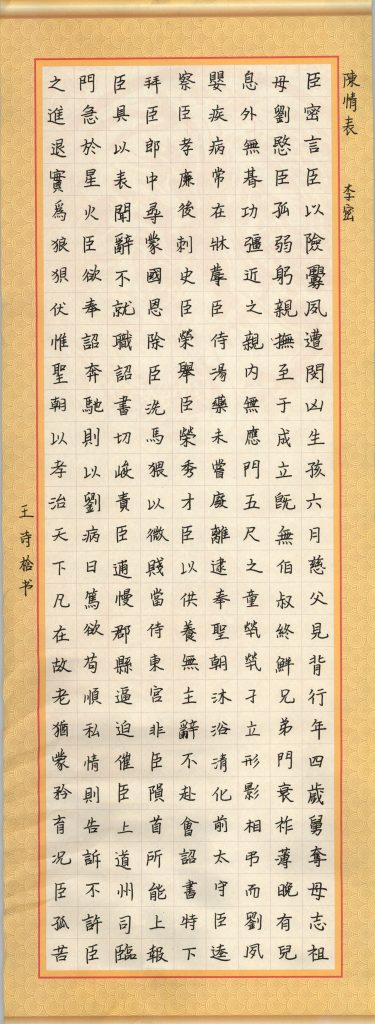 陳情表 李密
臣密言臣以險釁夙遭閔凶生孩六月慈父見背行年四歲舅奪母志祖
母劉愍臣孤弱躬親撫至于成立既無伯叔終鮮兄弟門衰祚薄晚有兒
息外無朞功彊近之親內無應門五尺之童煢煢孑立形影相吊而劉夙
嬰疾病常在牀蓐臣侍湯藥未嘗廢離逮奉聖朝沐浴清化前太守臣逵
察臣孝廉後刺史臣榮舉臣榮秀才臣以供養無主辭不赴會詔書特下
拜臣郎中尋蒙國恩除臣洗馬猥以微賤當侍東宮非臣隕首所能上報
臣具以表聞辭不就職詔書切峻責臣逋慢郡縣逼迫催臣上道州司臨
門急於星火臣欲奉詔奔馳則以劉病日篤欲苟順私情則告訴不許臣
之進退實為狼狽伏惟聖朝以孝治天下凡在故老猶蒙矜育況臣孤苦
王诗桧书